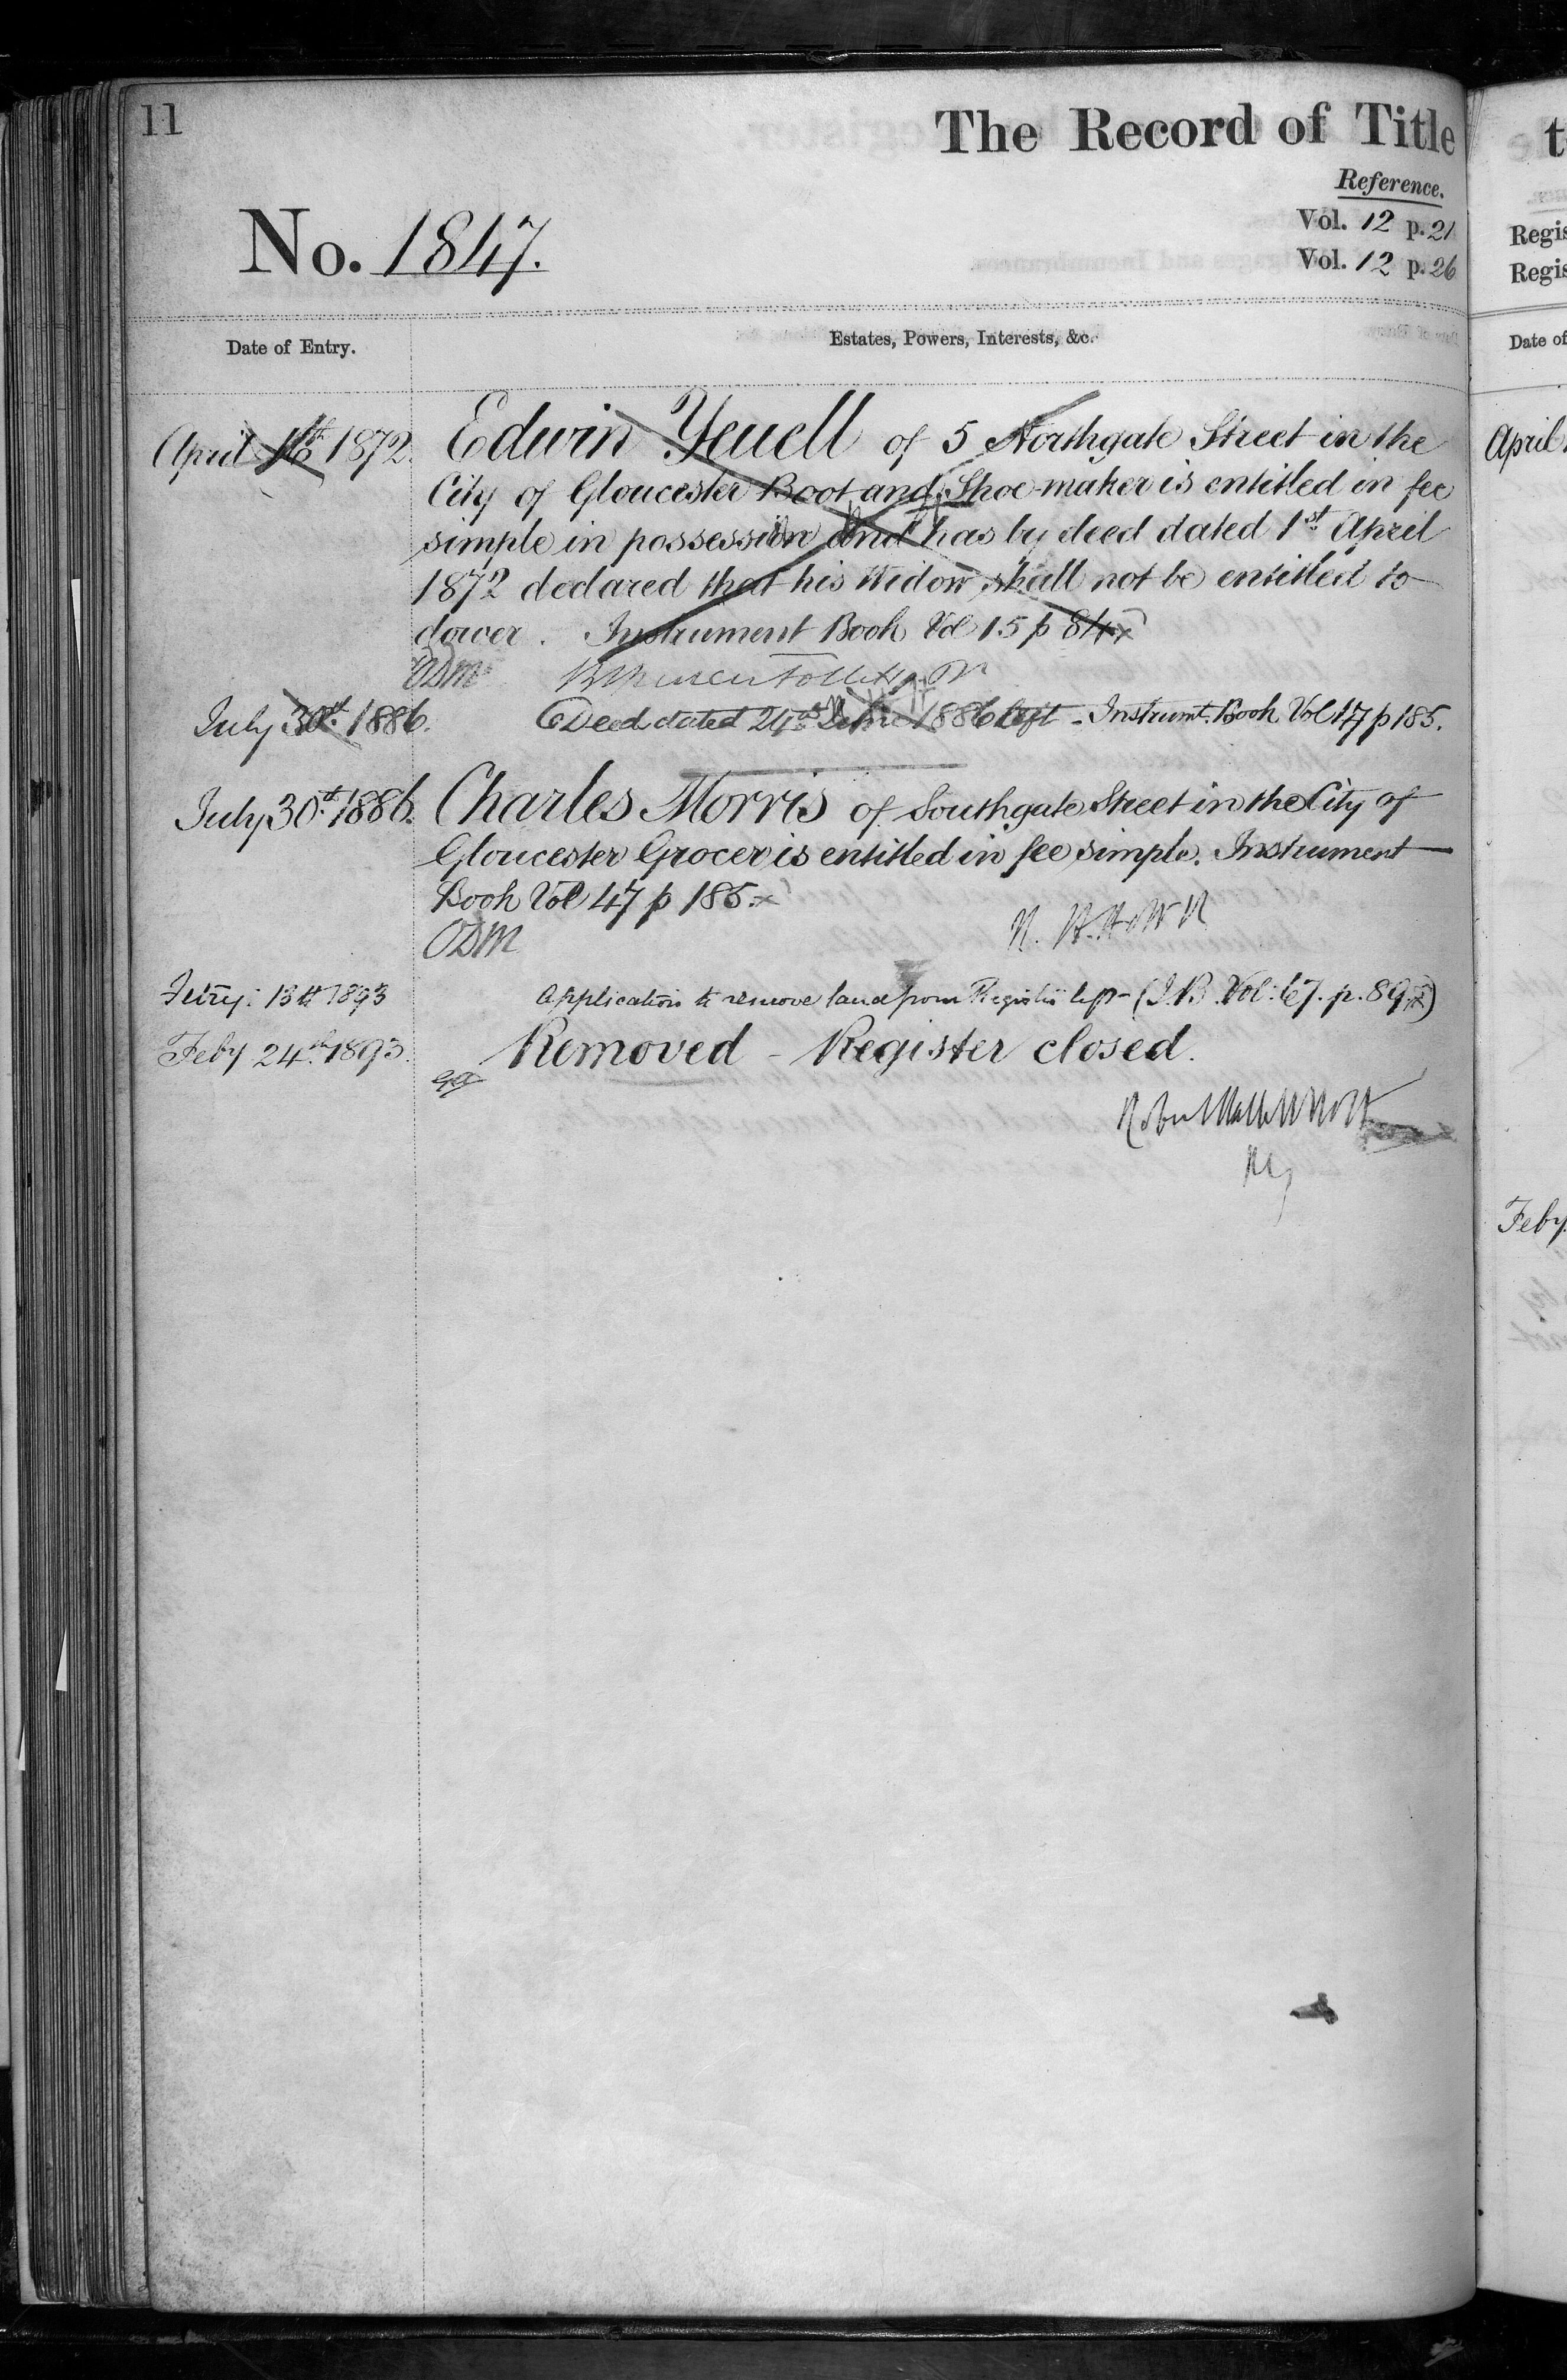 11
The Record of Title
Reference.
No. 1847.
Vol. 12 p. 21
Vol. 12 p. 26
Date of Entry.
Estates, Powers, Interests, &c.
April 16th 1872.
Edwin Yeuell of 5 Northgate Street in the
City of Gloucester Boot and Shoe-maker is entitled in fee
simple in possession and has by deed dated 1st April
1872 declared that his Widow shall not be entitled to
dower. Instrument Book Vol 15 p 84
ODM
July 30th 1886.
Deed dated 24th June 1886 left - Instrumt. Book Vol 47 p 185.
July 30th 1886.
Charles Morris of Southgate Street in the City of
Gloucester Grocer is entitled in fee simple. Instrument
Book Vol 47 p 185.
ODM
13th 1893
Application to remove land from Register left - (I.B. Vol: 67. p. 89)
Feby 24th 1893.
Removed - Register closed.
t
Regis
Regis
Date of
April
Feby